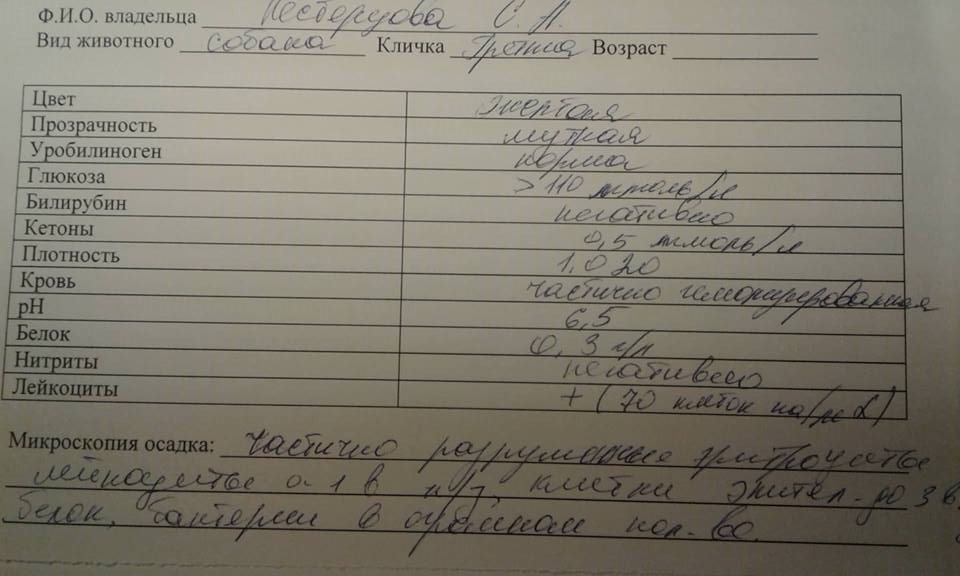 Ф.И.О. владельца С. А.
Вид животного собака Кличка Возраст
Цвет желтая
Прозрачность мутная
Уробилиноген норма
Глюкоза >110 ммоль/л
Билирубин негативно
Кетоны 0,5 ммоль/л
Плотность 1,020
Кровь частично гемолизированная
pH 6,5
Белок 0,3 г/л
Нитриты негативно
Лейкоциты + (70 клеток на/мкL)
Микроскопия осадка: частично разрушенные эритроциты
лейкоциты 0-1 в п/з, клетки эпител-до 3 в
белок, бактерии в огромном кол-во.